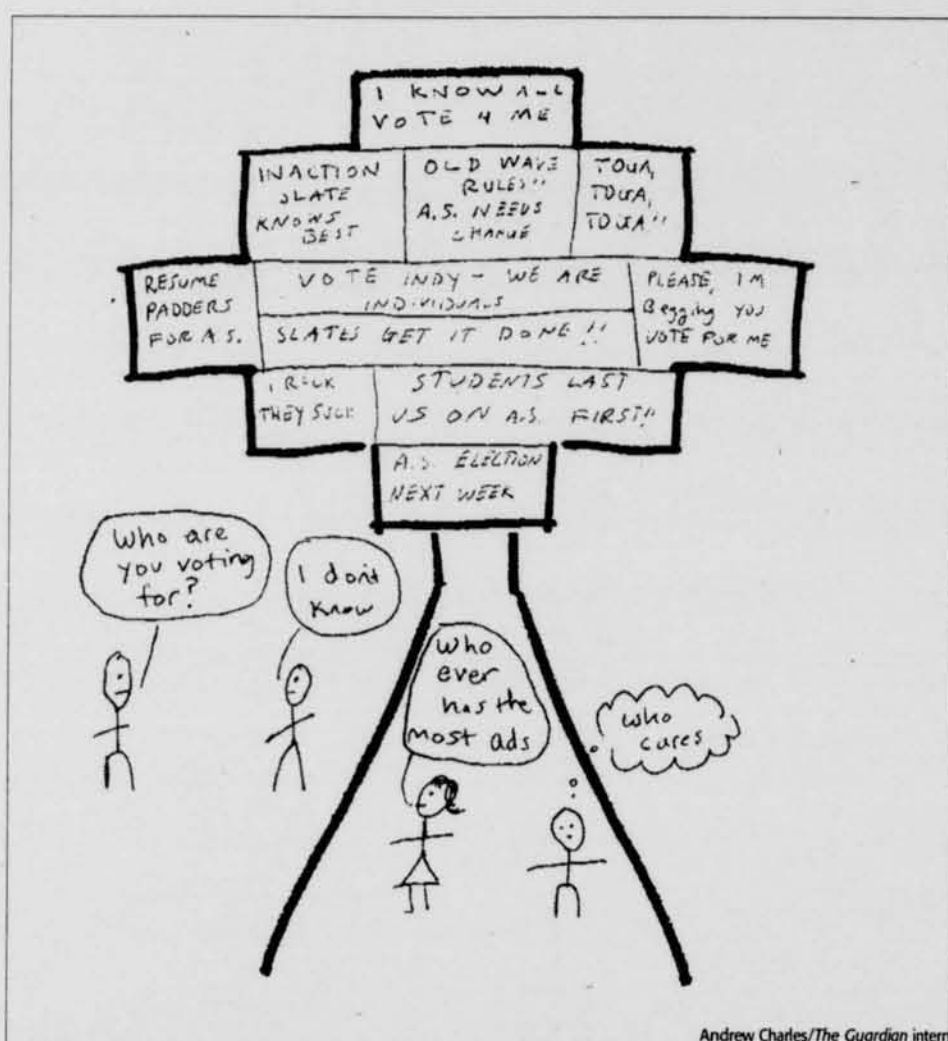 I KNOW ALL
VOTE 4 ME
INACTION
SLATE
KNOWS
BEST
OLD WAVE
RULES!!
A.S. NEEDS
CHANGE
TOGA,
TOGA,
TOGA!!
RESUME
PADDERS
FOR A.S.
VOTE INDY - WE ARE
INDIVIDUALS
SLATES GET IT DONE!!
PLEASE, IM
Begging YOU
VOTE FOR ME
I ROCK
THEY SUCK
STUDENTS LAST
US ON A.S. FIRST!!
A.S. ELECTION
NEXT WEEK
Who are
you voting
for?
I don't
know
Who
ever
has the
most ads
who
cares
Andrew Charles/The Guardian intern